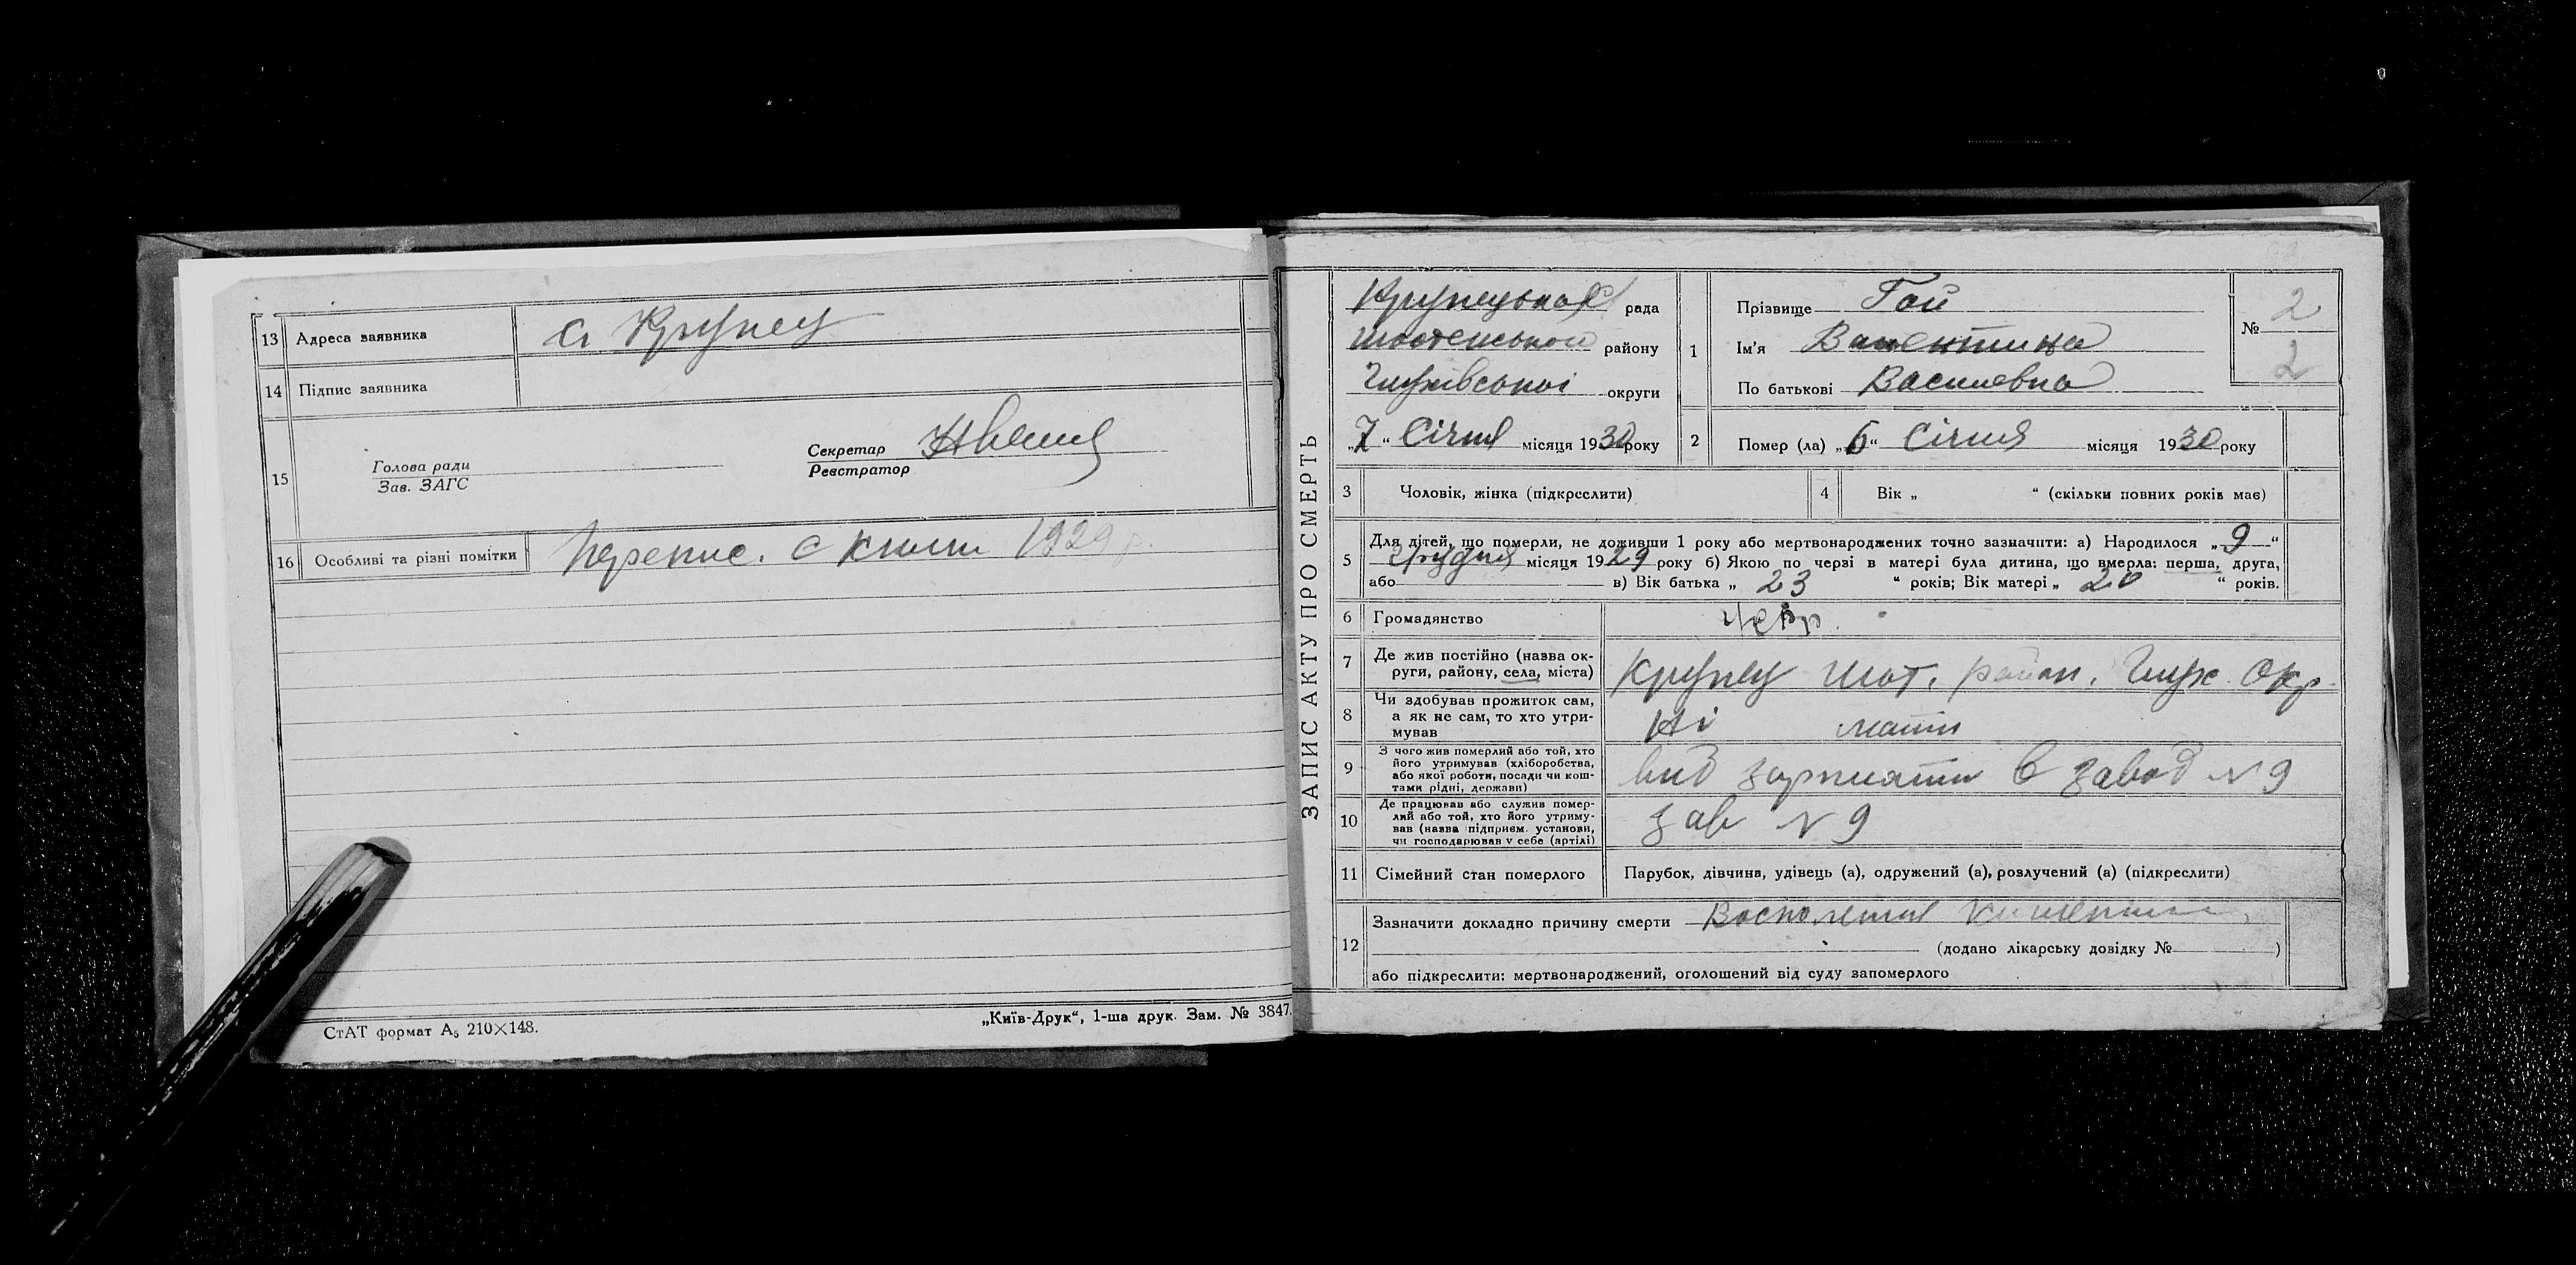 13 Адреса заявника с. Крупец
14 Підпис заявника
15 Голова ради
Зав. ЗАГС
Секретар
Реєстратор
16 Особливі та різні помітки Перепис. с книги 1929 г.
СтАТ формат А₅ 210×148.
„Київ-Друк“, 1-ша друк. Зам. № 3847.
ЗАПИС АКТУ ПРО СМЕРТЬ
Крупецькая рада
Шостенської району
Глухівської округи
„7“ Січня місяця 1930 року
1 Прізвище Гой
Ім'я Валентина
По батькові Василевна
№ 2
2
2 Помер (ла) „6“ Січня місяця 1930 року
3 Чоловік, жінка (підкреслити)
4 Вік „ “ (скільки повних років має)
5 Для дітей, що померли, не доживши 1 року або мертвонароджених точно зазначити: а) Народилося „9“
Грудня місяця 1929 року б) Якою по черзі в матері була дитина, що вмерла: перша, друга,
або в) Вік батька „ 23 “ років; Вік матері „ 20 “ років.
6 Громадянство
7 Де жив постійно (назва ок-
руги, району, села, міста) Крупец Шот. район. Глух. Окр.
8 Чи здобував прожиток сам,
а як не сам, то хто утри-
мував Ні мати
9 З чого жив померлий або той, хто
його утримував (хліборобства,
або якої роботи, посади чи кош-
тами рідні, держави) від зарплати в завод N 9
10 Де працював або служив помер-
лий або той, хто його утриму-
вав (назва підприєм. установи,
чи господарював у себе (артілі) зав N 9
11 Сімейний стан померлого Парубок, дівчина, удівець (а), одружений (а), розлучений (а) (підкреслити)
12 Зазначити докладно причину смерти
(додано лікарську довідку № )
або підкреслити: мертвонароджений, оголошений від суду запомерлого